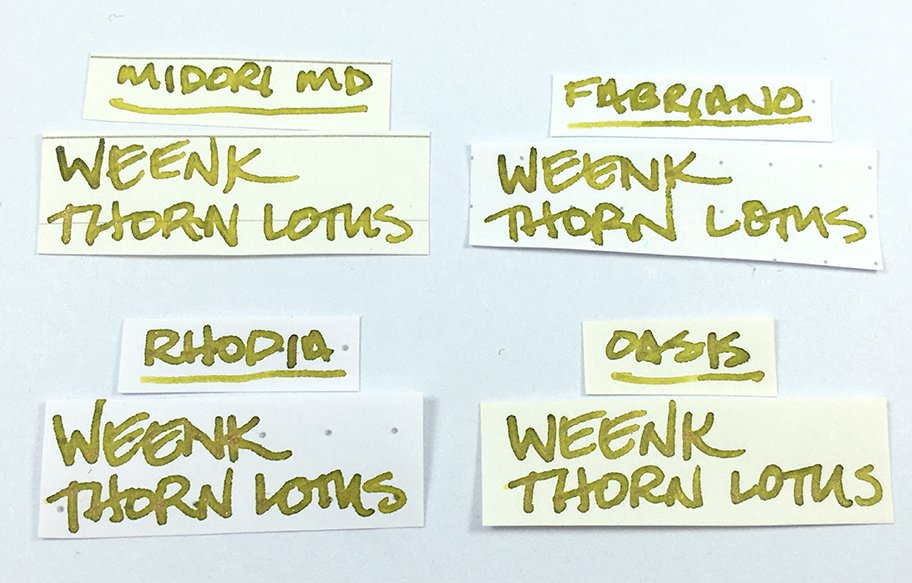 MIDORI MD
WEENK
THORN LOTUS
FABRIANO
WEENK
THORN LOTUS
RHODIA
WEENK
THORN LOTUS
OASIS
WEENK
THORN LOTUS